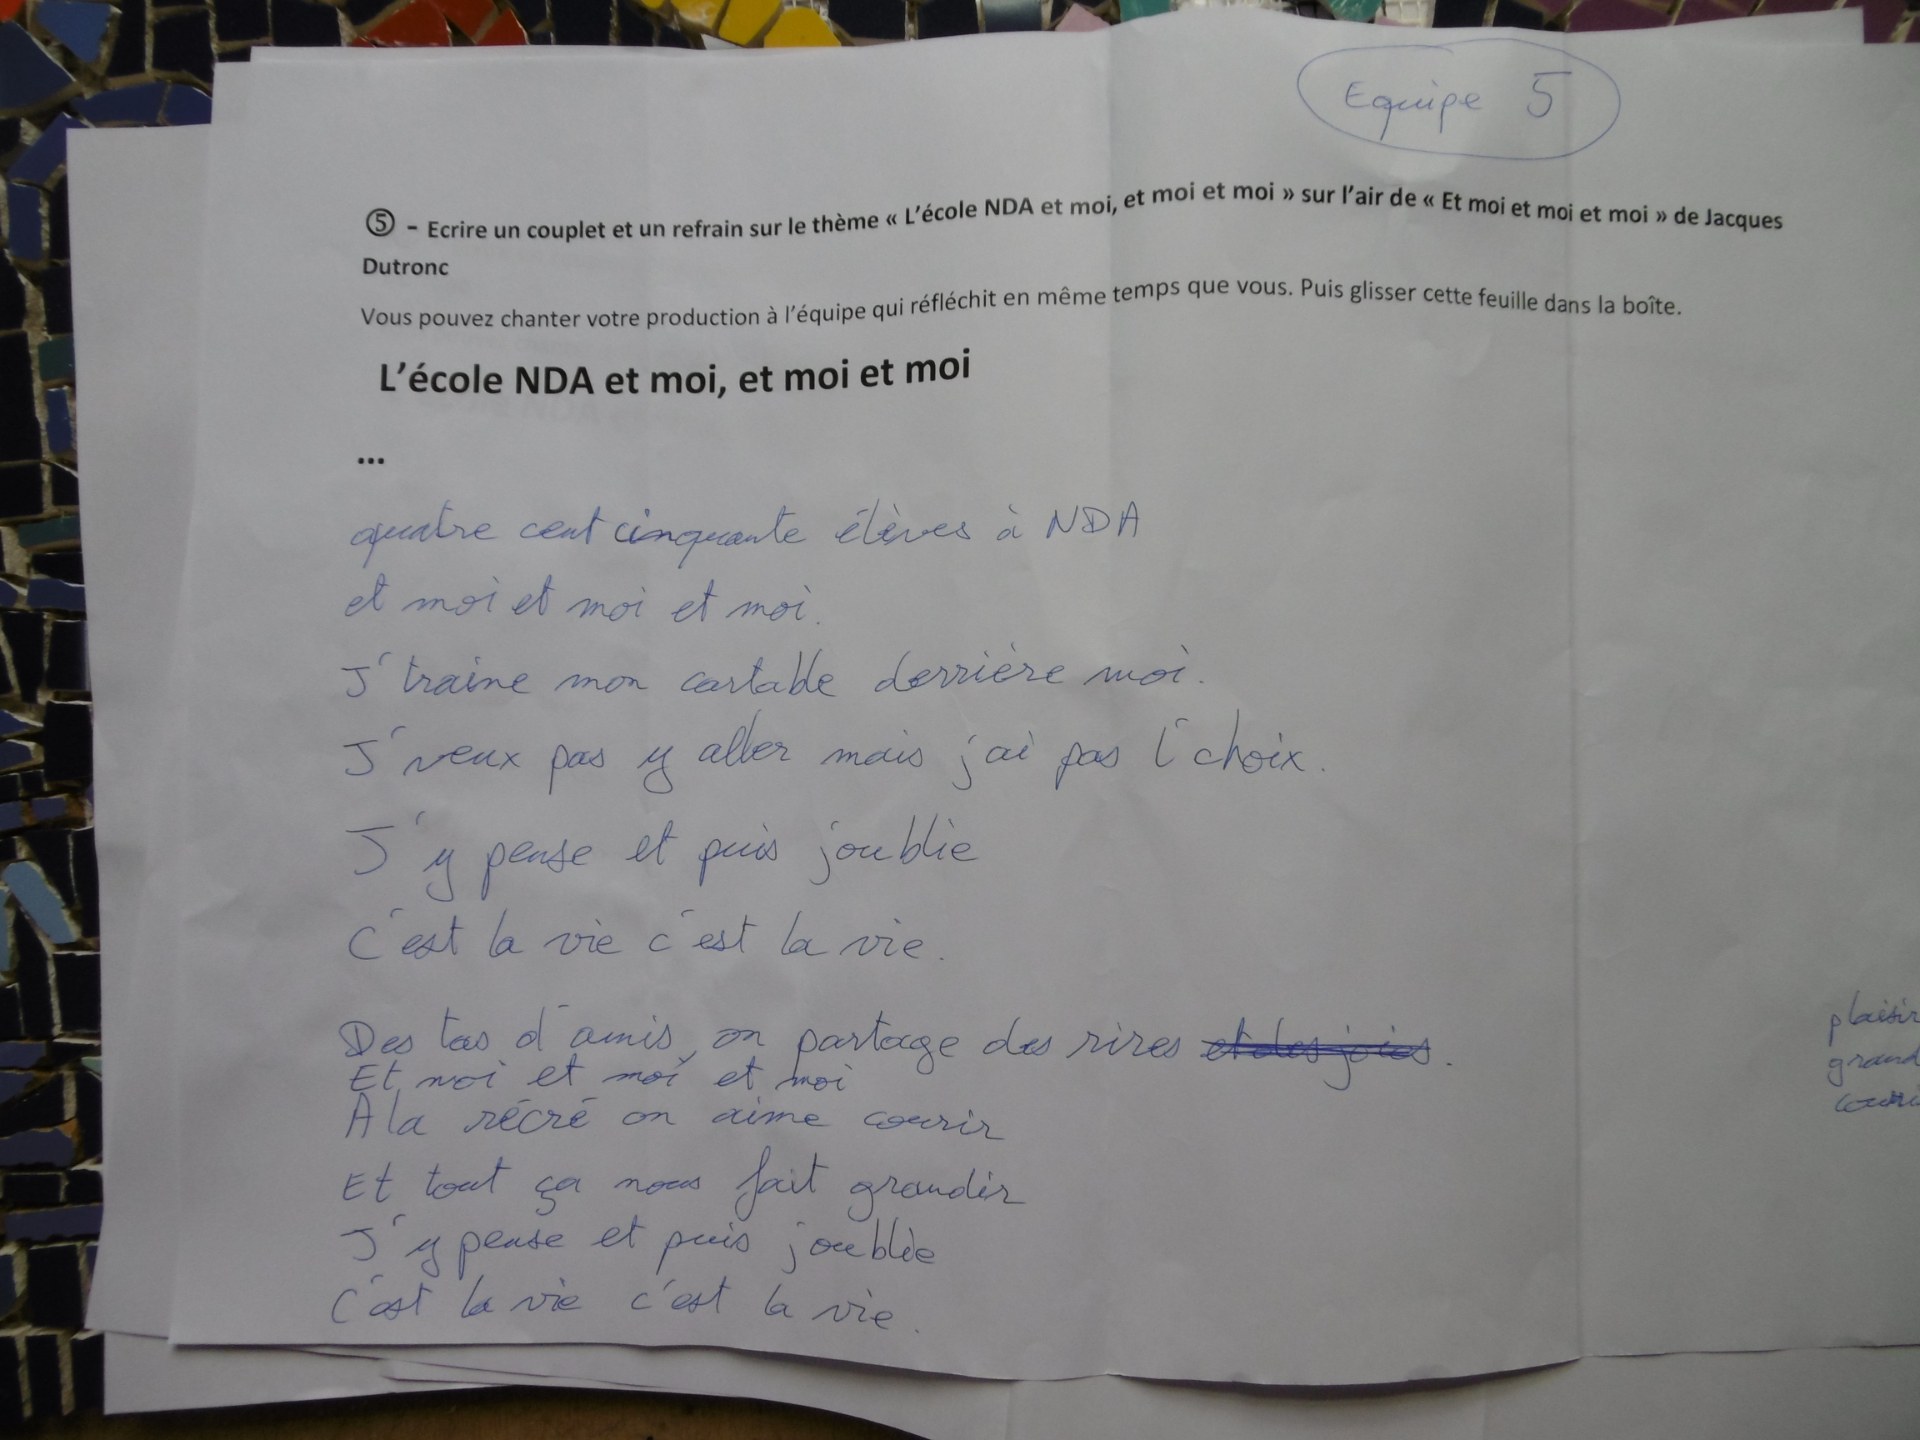 Equipe 5
⑤ - Ecrire un couplet et un refrain sur le thème « L'école NDA et moi, et moi et moi » sur l'air de « Et moi et moi et moi » de Jacques
Dutronc
Vous pouvez chanter votre production à l'équipe qui réfléchit en même temps que vous. Puis glisser cette feuille dans la boîte.
L'école NDA et moi, et moi et moi
...
quatre cent cinquante élèves à NDA
et moi et moi et moi.
J'traine mon cartable derrière moi.
J'veux pas y aller mais j'ai pas l'choix.
J'y pense et puis j'oublie
C'est la vie c'est la vie.
Des tas d'amis, on partage des rires et des joies.
Et moi et moi et moi
A la récré on aime courir
Et tout ça nous fait grandir
J'y pense et puis j'oublie
C'est la vie c'est la vie.
plaisir
grand